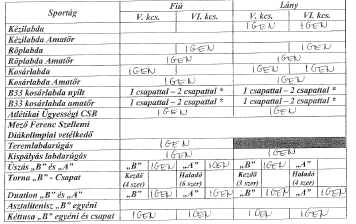 Sportág Fiú Lány
V. kcs. VI. kcs. V. kcs. VI. kcs.
Kézilabda IGEN IGEN
Kézilabda Amatőr
Röplabda IGEN IGEN
Röplabda Amatőr IGEN IGEN
Kosárlabda IGEN IGEN IGEN
Kosárlabda Amatőr IGEN IGEN
B33 kosárlabda nyílt 1 csapattal – 2 csapattal * 1 csapattal – 2 csapattal *
B33 kosárlabda amatőr 1 csapattal – 2 csapattal * 1 csapattal – 2 csapattal *
Atlétikai Ügyességi CSB IGEN IGEN
Mező Ferenc Szellemi
Diákolimpiai vetélkedő
Teremlabdarúgás IGEN
Kispályás labdarúgás IGEN IGEN
Úszás „B" és „A" „B" IGEN „A" IGEN „B" IGEN „A" IGEN
Torna „B" - Csapat Kezdő (4 szer) Haladó (6 szer) Kezdő (3 szer) Haladó (4 szer)
Duatlon „B" és „A" „B" IGEN „A" IGEN „B" IGEN „A" IGEN
Asztalitenisz „B" egyéni
Kéttusa „B" egyéni és csapat IGEN IGEN IGEN IGEN